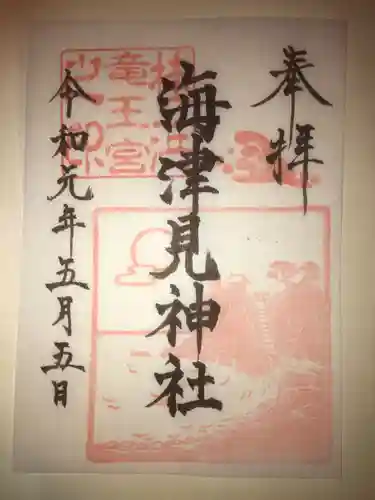 奉拝
海津見神社
令和元年五月五日
竜王宮